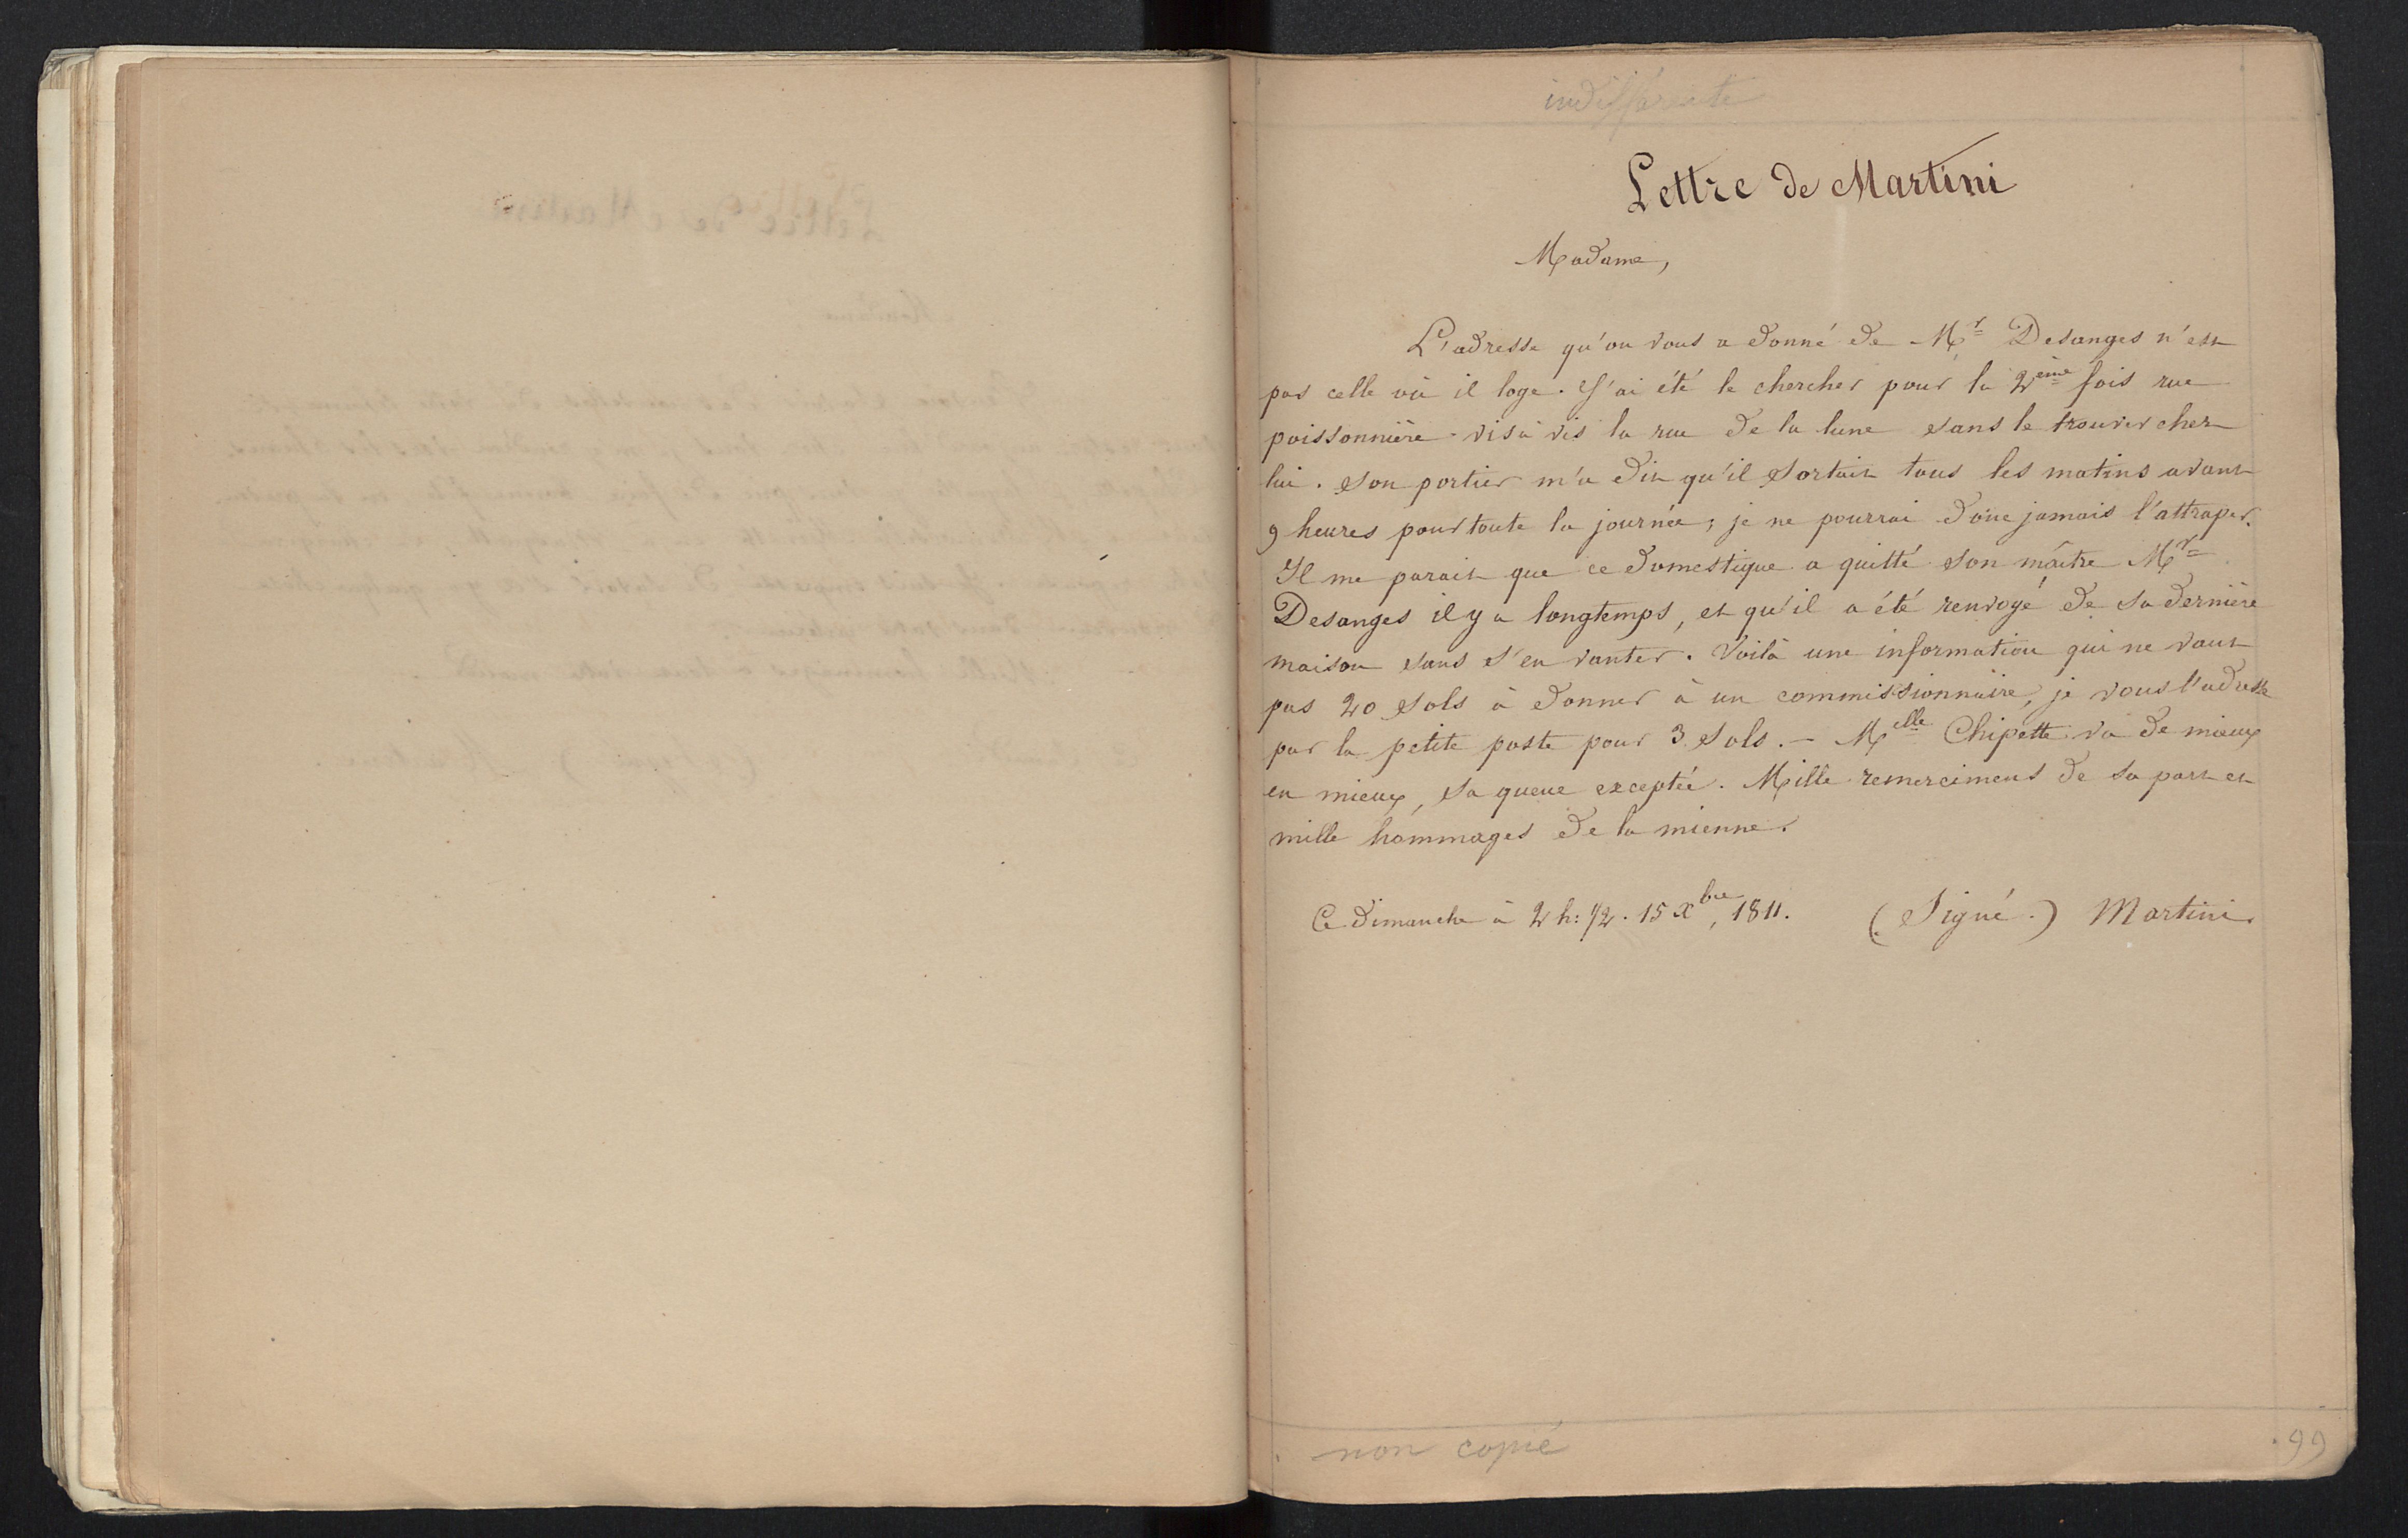 indifférente
Lettre de Martini
Madame,
L'adresse qu'on vous a donné de Mr Desanges n'est
pas celle où il loge. J'ai été le chercher pour la 2ème fois rue
poissonnière - vis à vis la rue de la lune sans le trouver chez
lui. Son portier m'a dit qu'il sortait tous les matins avant
9 heures pour toute la journée; je ne pourrai donc jamais l'attraper.
Il me parait que ce domestique a quitté son maître Mr
Desanges il y a longtemps, et qu'il a été renvoyé de sa dernière
maison sans s'en vanter. Voilà une information qui ne vaut
pas 20 sols à donner à un commissionnaire, je vous l'adresse
par la petite poste pour 3 sols. - Melle Chipette va de mieux
en mieux, sa queue exceptée. Mille remercimens de sa part et
mille hommages de la mienne.
Ce dimanche à 2 h: 1/2. 15 Xbre, 1811. (Signé.) Martini.
non copié
99